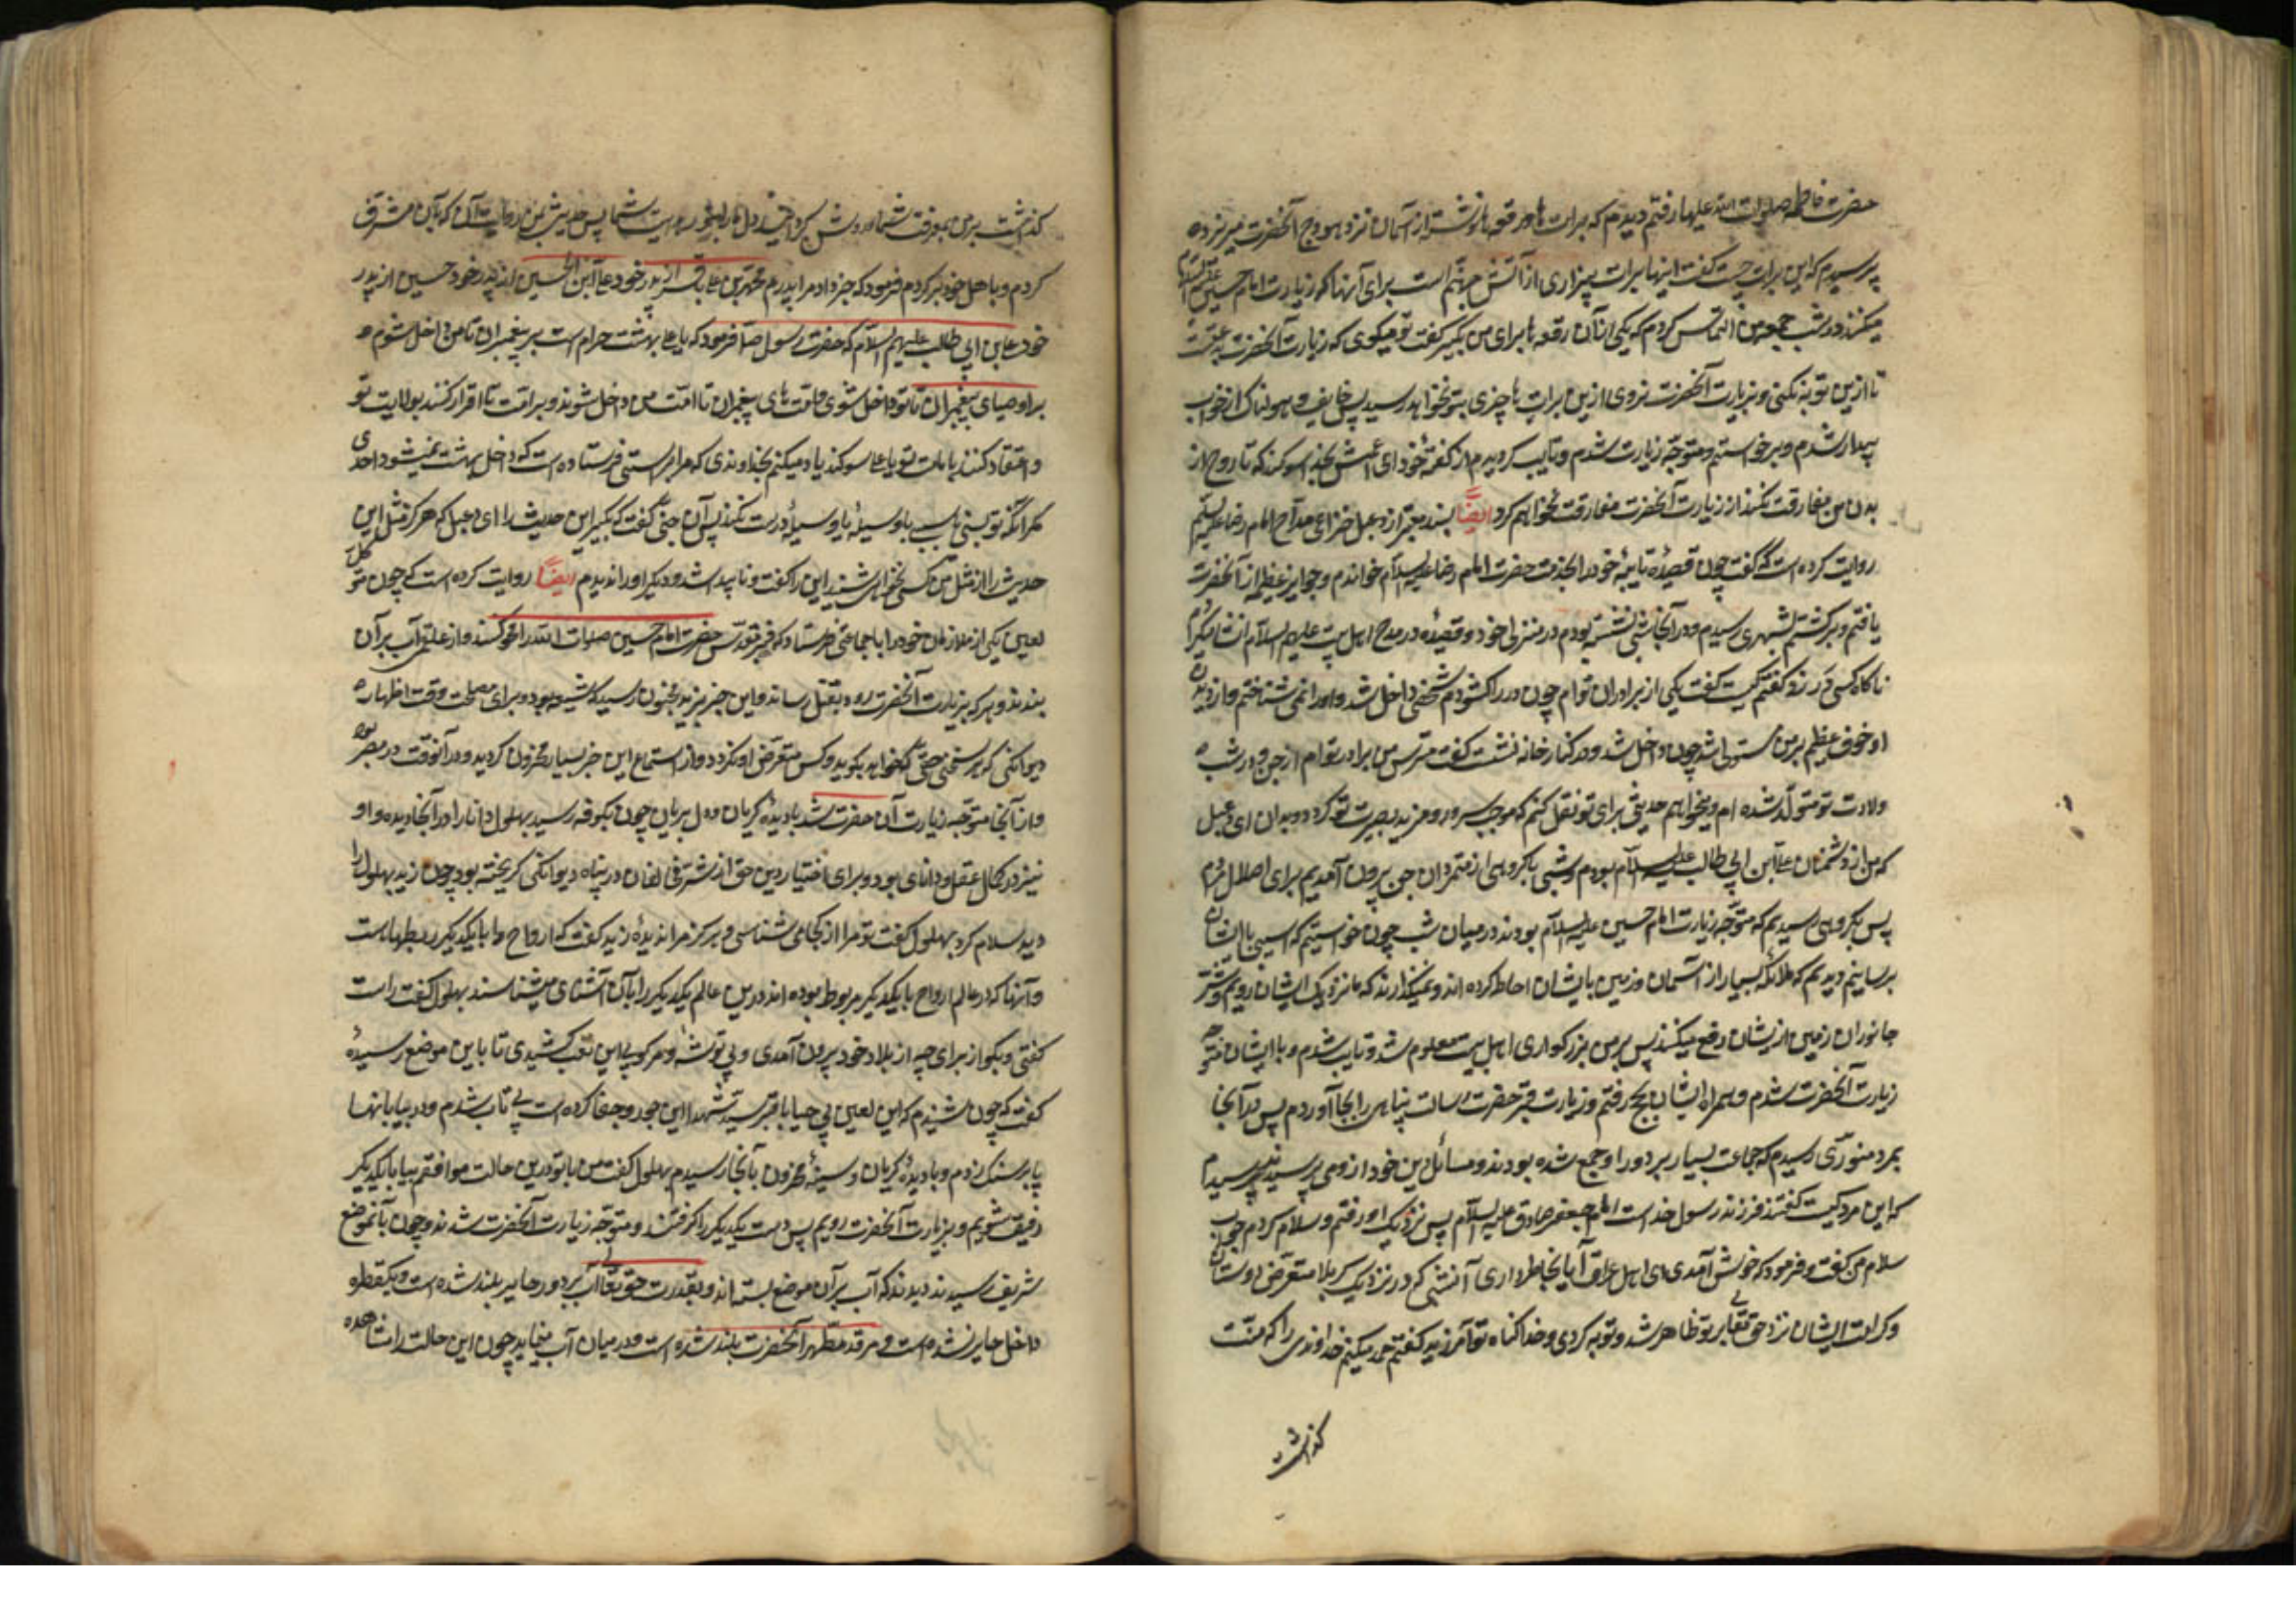 حضرت فاطمه صلوات الله علیها رفتم دیدم که برات ها و رقعه ها نوشته از آسمان نزد هودج آنحضرت میریزد
پرسیدم که این برات چیست گفت اینها برات بیزاری از آتش جهنم است برای آنها که زیارت امام حسین علیه السلام
میکنند در شب جمعه من التماس کردم که یکی از آن رقعه ها برای من بگیر گفت تو میکوی که زیارت آنحضرت بدعتست
تا ازین توبه نکنی و بزیارت آنحضرت نروی ازین برات ها چیزی بتو نخواهد رسید پس خایف و هولناک از خواب
بیدار شدم و برخواستم و متوجه زیارت شدم و تایب کردیدم از کفتهٔ خود ای اعمش بخدا سوکند که تا روح از
بدن من مفارقت نکند از زیارت آنحضرت مفارقت نخواهم کرد ایضًا بسند معتبر از دعبل خزاعی مداح امام رضا علیه السلم
روایت کرده است که گفت چون قصیدهٔ تاییهٔ خود را بخدمت حضرت امام رضا علیه السلام خواندم و جوایز عظیمه از آنحضرت
یافتم و برکشتم بشهر ری رسیدم و در آنجا شبی نشسته بودم در منزل خود و قصیدهٔ در مدح اهل بیت علیهم السلام انشا میکردم
ناکاه کسی در زد کفتم کیست کفت یکی از برادران توام چون در را کشودم شخصی داخل شد و او را نمی شناختم و از دیدن
او خوف عظیم بر من مستولی شد چون داخل شد و در کنار خانه نشست کفت مترس من برادر توام از جن و در شب
ولادت تو متولد شده ام و میخواهم حدیثی برای تو نقل کنم که موجب سرور و مزید بصیرت تو کردد و بدان ای دعبل
که من از دشمنان علی ابن ابی طالب علیه السلام بودم و شبی با کروهی از متمردان جن بیرون آمدیم برای اضلال مردم
پس بکروهی رسیدیم که متوجه زیارت امام حسین علیه السلام بودند در میان شب چون خواستیم که اسیبی با ایشان
برسانیم دیدیم که ملائکه بسیار از آسمان و زمین بایشان احاطه کرده اند و نمیکذارند که ما نزدیک ایشان رویم و شر
جانوران زمین از یشان دفع میکنند پس بر من بزرکواری اهل بیت معلوم شد و تایب شدم و با ایشان متوجه
زیارت آنحضرت شدم و همراه ایشان بحج رفتم و زیارت قبر حضرت رسالت پناهی را بجا آوردم پس در آنجا
بمرد منوّری رسیدم که جماعت بسیار بر دور او جمع شده بودند و مسائل دین خود از وی می پرسیدند پرسیدم
که این مرد کیست کفتند فرزند رسول خداست امام جعفر صادق علیه السلام پس نزدیک او رفتم و سلام کردم جواب
سلام من کفت و فرمود که خوش آمدی ای اهل عراق آیا بخاطر داری آن شبی که در نزدیک کربلا متعرض دوستان
و کرامت ایشان نزد حق تعالی بر تو ظاهر شد و توبه کردی و خدا کناه تو آمرزید کفتم حمد میکنم خداوندی را که منت
کذاشت
کذاشت بر من بمعرفت شما و روشن کردانید دل مرا بنور هدایت شما پس حدیثی بمن روایت کن که بآن مشرف
کردم و با هل خود برکردم فرمود که خبر داد مرا پدرم محمد بن علی باقر از پدر خود علی ابن الحسین از پدر خود حسین از پدر
خود علی بن ابی طالب علیهم السلام که حضرت رسول ص فرمود که یا علی بهشت حرام است بر پیغمبران تا من داخل شوم و
بر اوصیای پیغمبران تا تو داخل شوی و امت های پیغمبران تا امت من داخل شوند و بر امت تا اقرار کنند بولایت تو
و اعتقاد کنند بامامت تو یا علی سوکند یاد میکنم بخداوندی که مرا براستی فرستاده است که داخل بهشت نمیشود احدی
مکر آنکه تو نسبی یا سببی پس آن جنی کفت که بکیر این حدیث را ای دعبل که هرکز مثل این
حدیث را از مثل من کسی نخواهی شنید این را کفت و ناپیدا شد و دیکر او را ندیدم ایضًا روایت کرده است که چون متوکل
لعین یکی از ملازمان خود را با جماعتی فرستاد که قبر مقدس حضرت امام حسین صلوات الله را محو کنند و از علقمی آب بر آن
بندند و هر که بزیارت آنحضرت رود بقتل رساند و این خبر بزید مجنون رسید که شیعه بود و برای مصلحت وقت اظهار
دیوانکی کردی بود تا هر سخن حقی که خواهد بکوید و کس متعرض او نکردد و از استماع این خبر بسیار محزون کردید و در آنوقت در مصر بود
و از آنجا متوجه زیارت آن حضرت شد با دیدهٔ کریان و دل بریان چون بکوفه رسید بهلول دانا را در آنجا دیده و او
نیز در کمال عقل و دانای بود و برای اختیار دین حق از شر مخالفان در پناه دیوانکی کریخته بود چون زید بهلول را
دید سلام کرد بهلول کفت تو مرا از کجا می شناسی و هرکز مرا ندیدهٔ زید کفت که ارواح را با یکدیکر ربطهاست
و آنها که در عالم ارواح با یکدیکر مربوط بوده اند درین عالم یکدیکر را بآن آشنای میشناسند بهلول کفت راست
کفتی و بکو از برای چه از بلاد خود بیرون آمدی و بی توشه و مرکوب این تعب کشیدی تا باین موضع رسیدهٔ
کفت که چون شنیدم که این لعین بی حیا با قبر سید شهدا این جور و جفا کرده است بی تاب شدم و در بیابانها
پا بر سنک زدم و با دیدهٔ کریان و سینهٔ محزون بآنجا رسیدم بهلول کفت من با تو درین حالت موافقم بیا با یکدیکر
رفیق شویم و بزیارت آنحضرت رویم پس دست یکدیکر را کرفتند و متوجه زیارت آنحضرت شدند و چون بآنموضع
شریف رسیدند دیدند که آب بر آن موضع بسته اند و بقدرت حق تعالی آب بر دور حایر بلند شده است و یکقطره
داخل حایر نشده است و مرقد مطهر آنحضرت بلند شده است و در میان آب مینماید چون این حالت را مشاهده